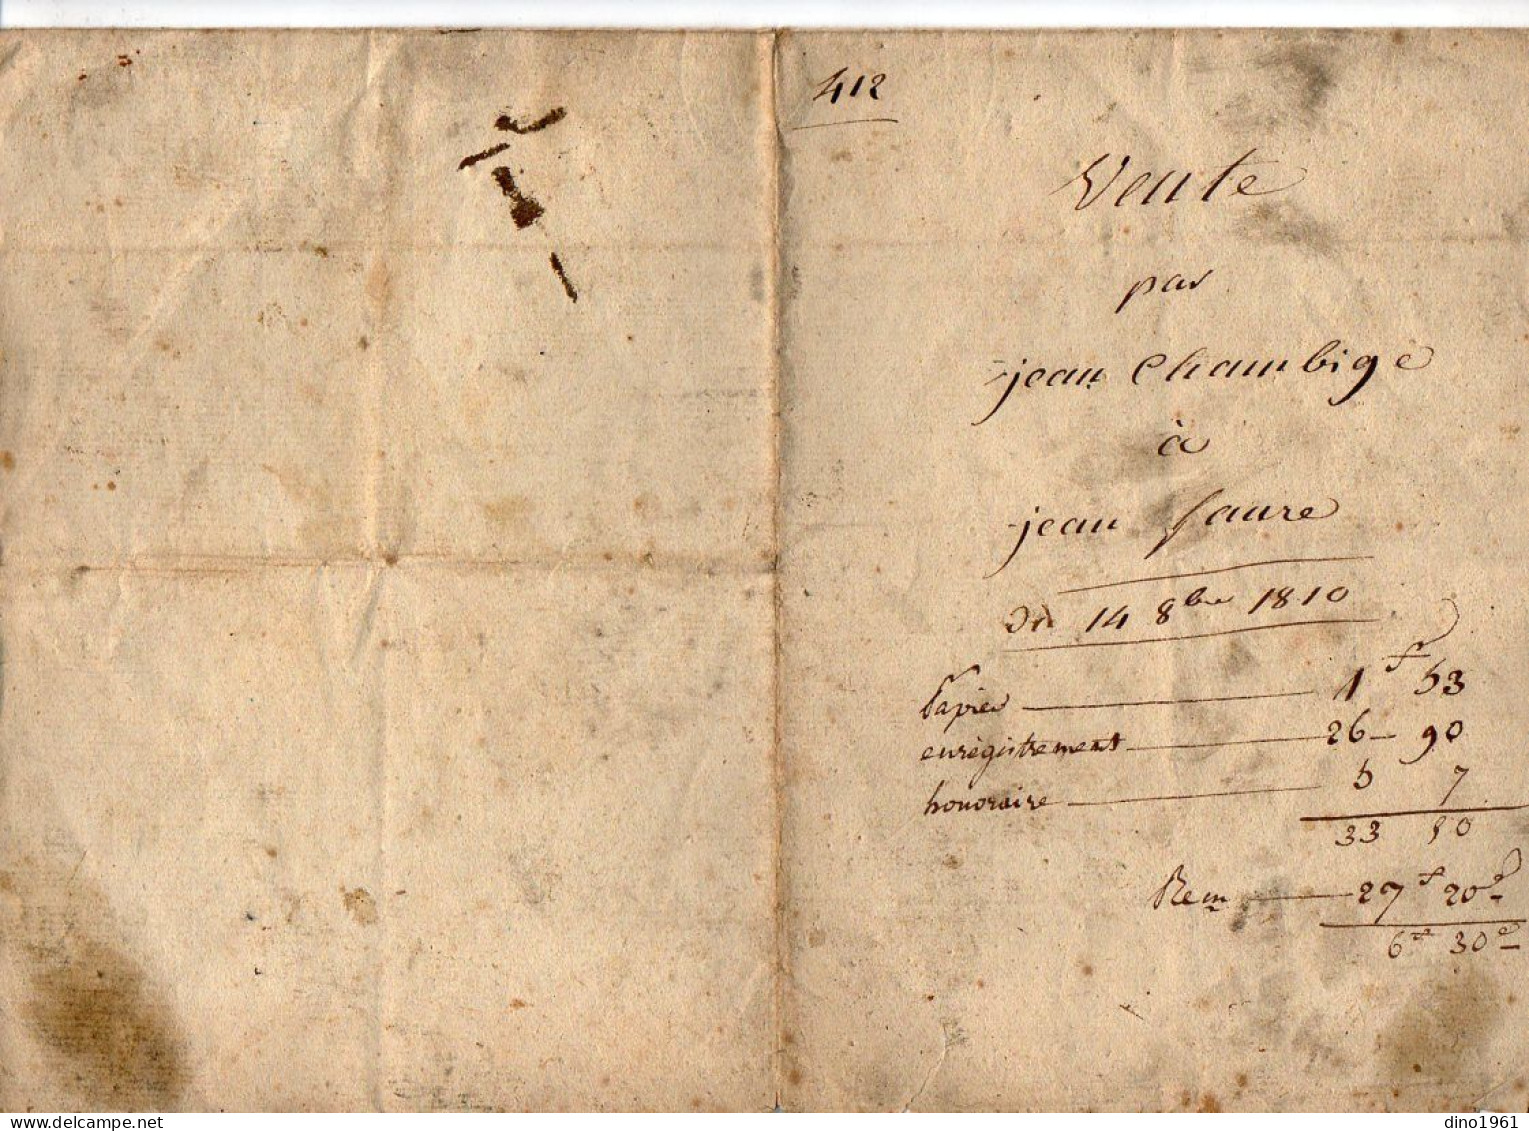 412
Vente
par
jean Chambige
à
jean faure
Du 14 8bre 1810
Papier 1f 53
enregistrement 26 90
honoraire 5 7
33 50
Rem 27f 20c
6f 30c
dino1961